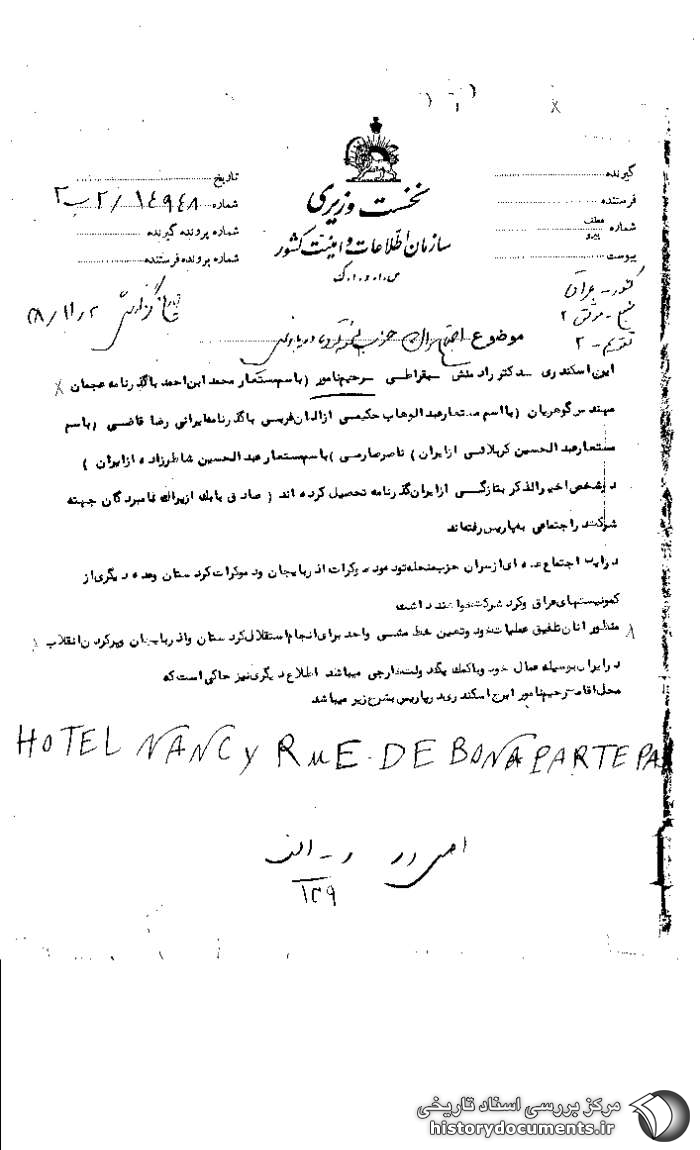 گیرنده
فرستنده
شماره عطف پیرو
پیوست
نخست وزیری
سازمان اطلاعات و امنیت کشور
س.ا.و.ا.ک
تاریخ
شماره ۱۴۹۴۸/۲ ب۲
شماره پرونده گیرنده
شماره پرونده فرستنده
کشور - عراق
۲
تقویم - ۲
تاریخ گزارش ۲/۱۱/۳۸
موضوع حزب توده در پاریس
ایرج اسکندری - دکتر رادمنش - بقراطی - رحیم نامور (باسم مستعار محمد ابن احمد باگذرنامه عجمان
مهندس گوهریان (بااسم مستعار عبدالوهاب حکیمی ازالمان غربی باگذرنامه ایرانی رضا قاضی (باسم
مستعار عبدالحسین کربلائی ازایران) ناصر صارمی (باسم مستعار عبدالحسین شاطرزاده ازایران )
دو شخص اخیرالذکر بتازگی ازایران گذرنامه تحصیل کرده اند ( صادق بابک نامبردگان جهته
شرکت دراجتماعی به پاریس رفته‌اند
دراین اجتماع عده ای ازسران حزب منحله توده ودموکرات اذربایجان ودموکرات کردستان وعده دیگری از
کمونیستهای عراقی وکرد شرکت خواهند داشت
منظور انان تلفیق عملیات خود وتعیین خط مشی واحد برای انجام استقلال کردستان واذربایجان وبرپاکردن انقلاب
درایران بوسیله عمال خود وباکمک یکدولت خارجی میباشد اطلاع دیگری نیز حاکی است که
محل اقامت رحیم نامور ایرج اسکندری درپاریس بشرح زیر میباشد
HOTEL NANCY RUE. DE BONAPARTE PA
اصل در و - الف
۱۳۹
مرکز بررسی اسناد تاریخی
historydocuments.ir